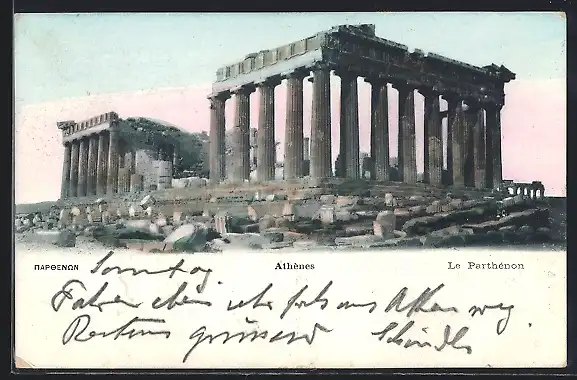 ΠΑΡΘΕΝΩΝ Athènes Le Parthénon
Sonntag
Fahre eben fort aus Athen weg
Bestens grüssend Schindler